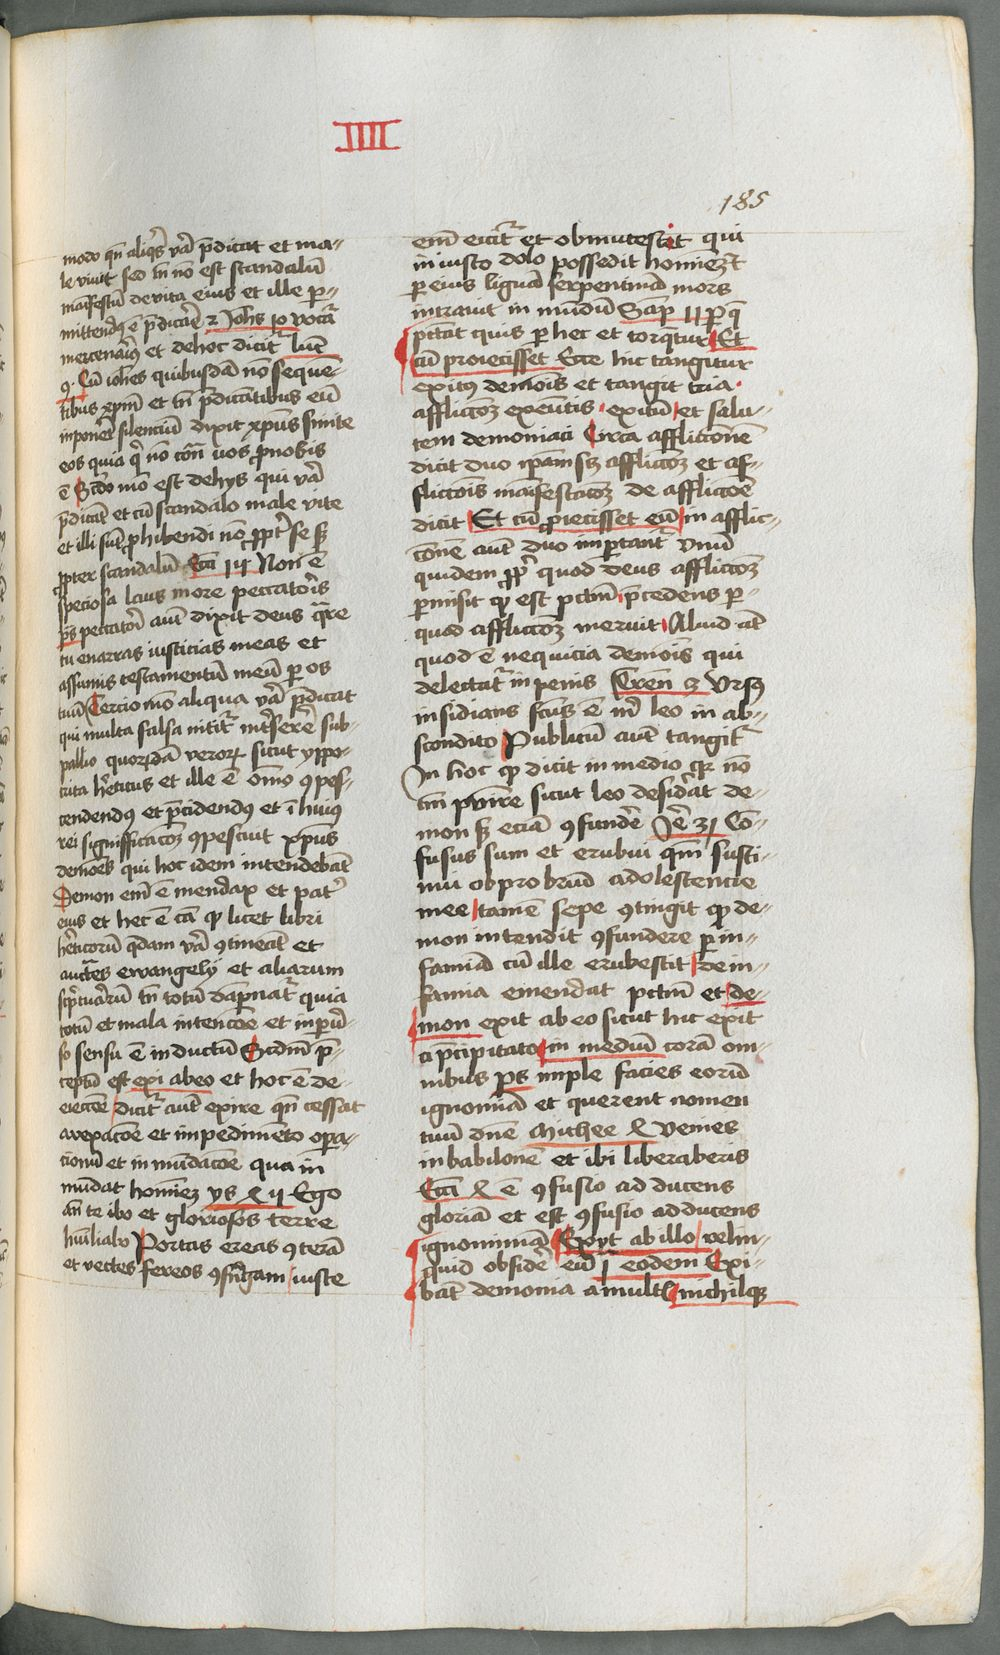 IIII
185
modo qn̄ aliq̄s v̄a p̄dicat et ma-
le vivit sed tn̄ nō est scandalū
manifestū de vita eius et ille p̄-
mittendꝰ ē p̄dicāre Johs̄ vocāt
mercenariꝰ et de hoc dicit̄ luc̄
9. Cū ioh̄es quibusdā nō seque-
tibus xp̄m et tn̄ p̄dicantibus eū
inponeret silenciū dixit xp̄us sinite
eos quia q̄ nō cōn̄ vos p̄ nobis
ē Sc̄do mō est de hys qui v̄a
p̄dicāt et cū scandalo male vite
et illi sūt p̄hibendi nō p̄pt̄ se sꝫ
p̄pter scandalū Ecc̄i Non ē
speciosa laus in ore peccatoris
p̄s peccatori aut̄ dixit deus q̄re
tu enarras iusticias meas et
assumis testamentū meū p̄ os
tuū Tercio mō aliqua v̄a p̄dicat
qui multa falsa nitit̄ int̄serere sub-
pallio quorūdā verorꝝ sicut yppo-
crita hereticus et ille ē om̄o 9pes-
cendendꝰ et p̄cidendꝰ et ī huiꝰ
rei significacōꝫ 9pescuit xp̄us
demōes qui hoc idem intendebāt
Demon em̄ ē mendax et pat̄
eius et hec ē cā qꝫ licet libri
hereticorū q̄dam v̄a 9tineāt et
auctes ewangelÿ et aliarum
scpturarū tn̄ totū dāpnat̄ quia
totū et mala intencōe et in pūer-
so sensu ē inductū Scdm̄ p̄-
ceptū est exi ab eo et hoc ē de-
eieccōe dicit̄ aut̄ exire qn̄ cessat
a vexacōe et impedimēto opera-
cionū et inmūdacōe qua in-
mūdat homieꝫ ys XII Ego
an̄ te ibo et gloriosos terre
hūiliabo Portas ereas 9terā
et vectes fereos 9frīgam iuste
em̄ eicit̄ et obmutescit qui
iniusto dolo possedit homieꝫ et
p̄ eius liguā serpentinā mors
intravit in mūdū Sap̄ II p̄ q̄
pctāt quis p̄ hec et torq̄tur Et
cū proiecisset Ecce hic tangitur
exitꝰ demōis et tangit tria
afflictōꝫ exeūtis exitū et salu-
tem demoniaci Circa afflictionē
dicit duo ip̄am sꝫ afflictōꝫ et af-
flictōis manifestacōꝫ de afflictōe
dicit Et cū p̄iecisset eū in afflic-
cōne aut̄ duo important̄ vnū
quidem p̄p̄ quod deus afflictōꝫ
p̄misit qꝫ est pctm̄ p̄cedens p̄-
quod afflictōꝫ meruit Aliud aūt
quod ē nequicia demōis qui
delectat̄ in penis Tren̄ 3 Vrsꝰ
insidians fcūs ē m̄ leo in ab-
scondito Publicū aut̄ tangit̄
In hoc qꝫ dicit in medio qꝛ nō
tm̄ pvnire sicut leo desiderat de-
mon sꝫ eciā 9fundere Je 31 Con-
fusus sum et erubui qm̄ susti-
nui obprobriū adolescencie
mee tamē sepe 9tingit qꝫ de-
mon intendit 9fundere p̄ in-
famiā cū ille erubescit de in-
famia emendat pctm̄ et de-
mon exit ab eo sicut hic exit
a p̄cipitato in mediū corā om-
nibus p̄s imple facies eorū
ignominiā et querent nomen
tuū dn̄e Michee X venies
in babilonē et ibi liberaberis
Ecc̄i X ē 9fusio adducens
gloriā et est 9fusio adducens
ignominiā Exyt ab illo relin-
quid obsidere eū J eodem Exi-
bāt demonia a multꝭ nichilqꝫ